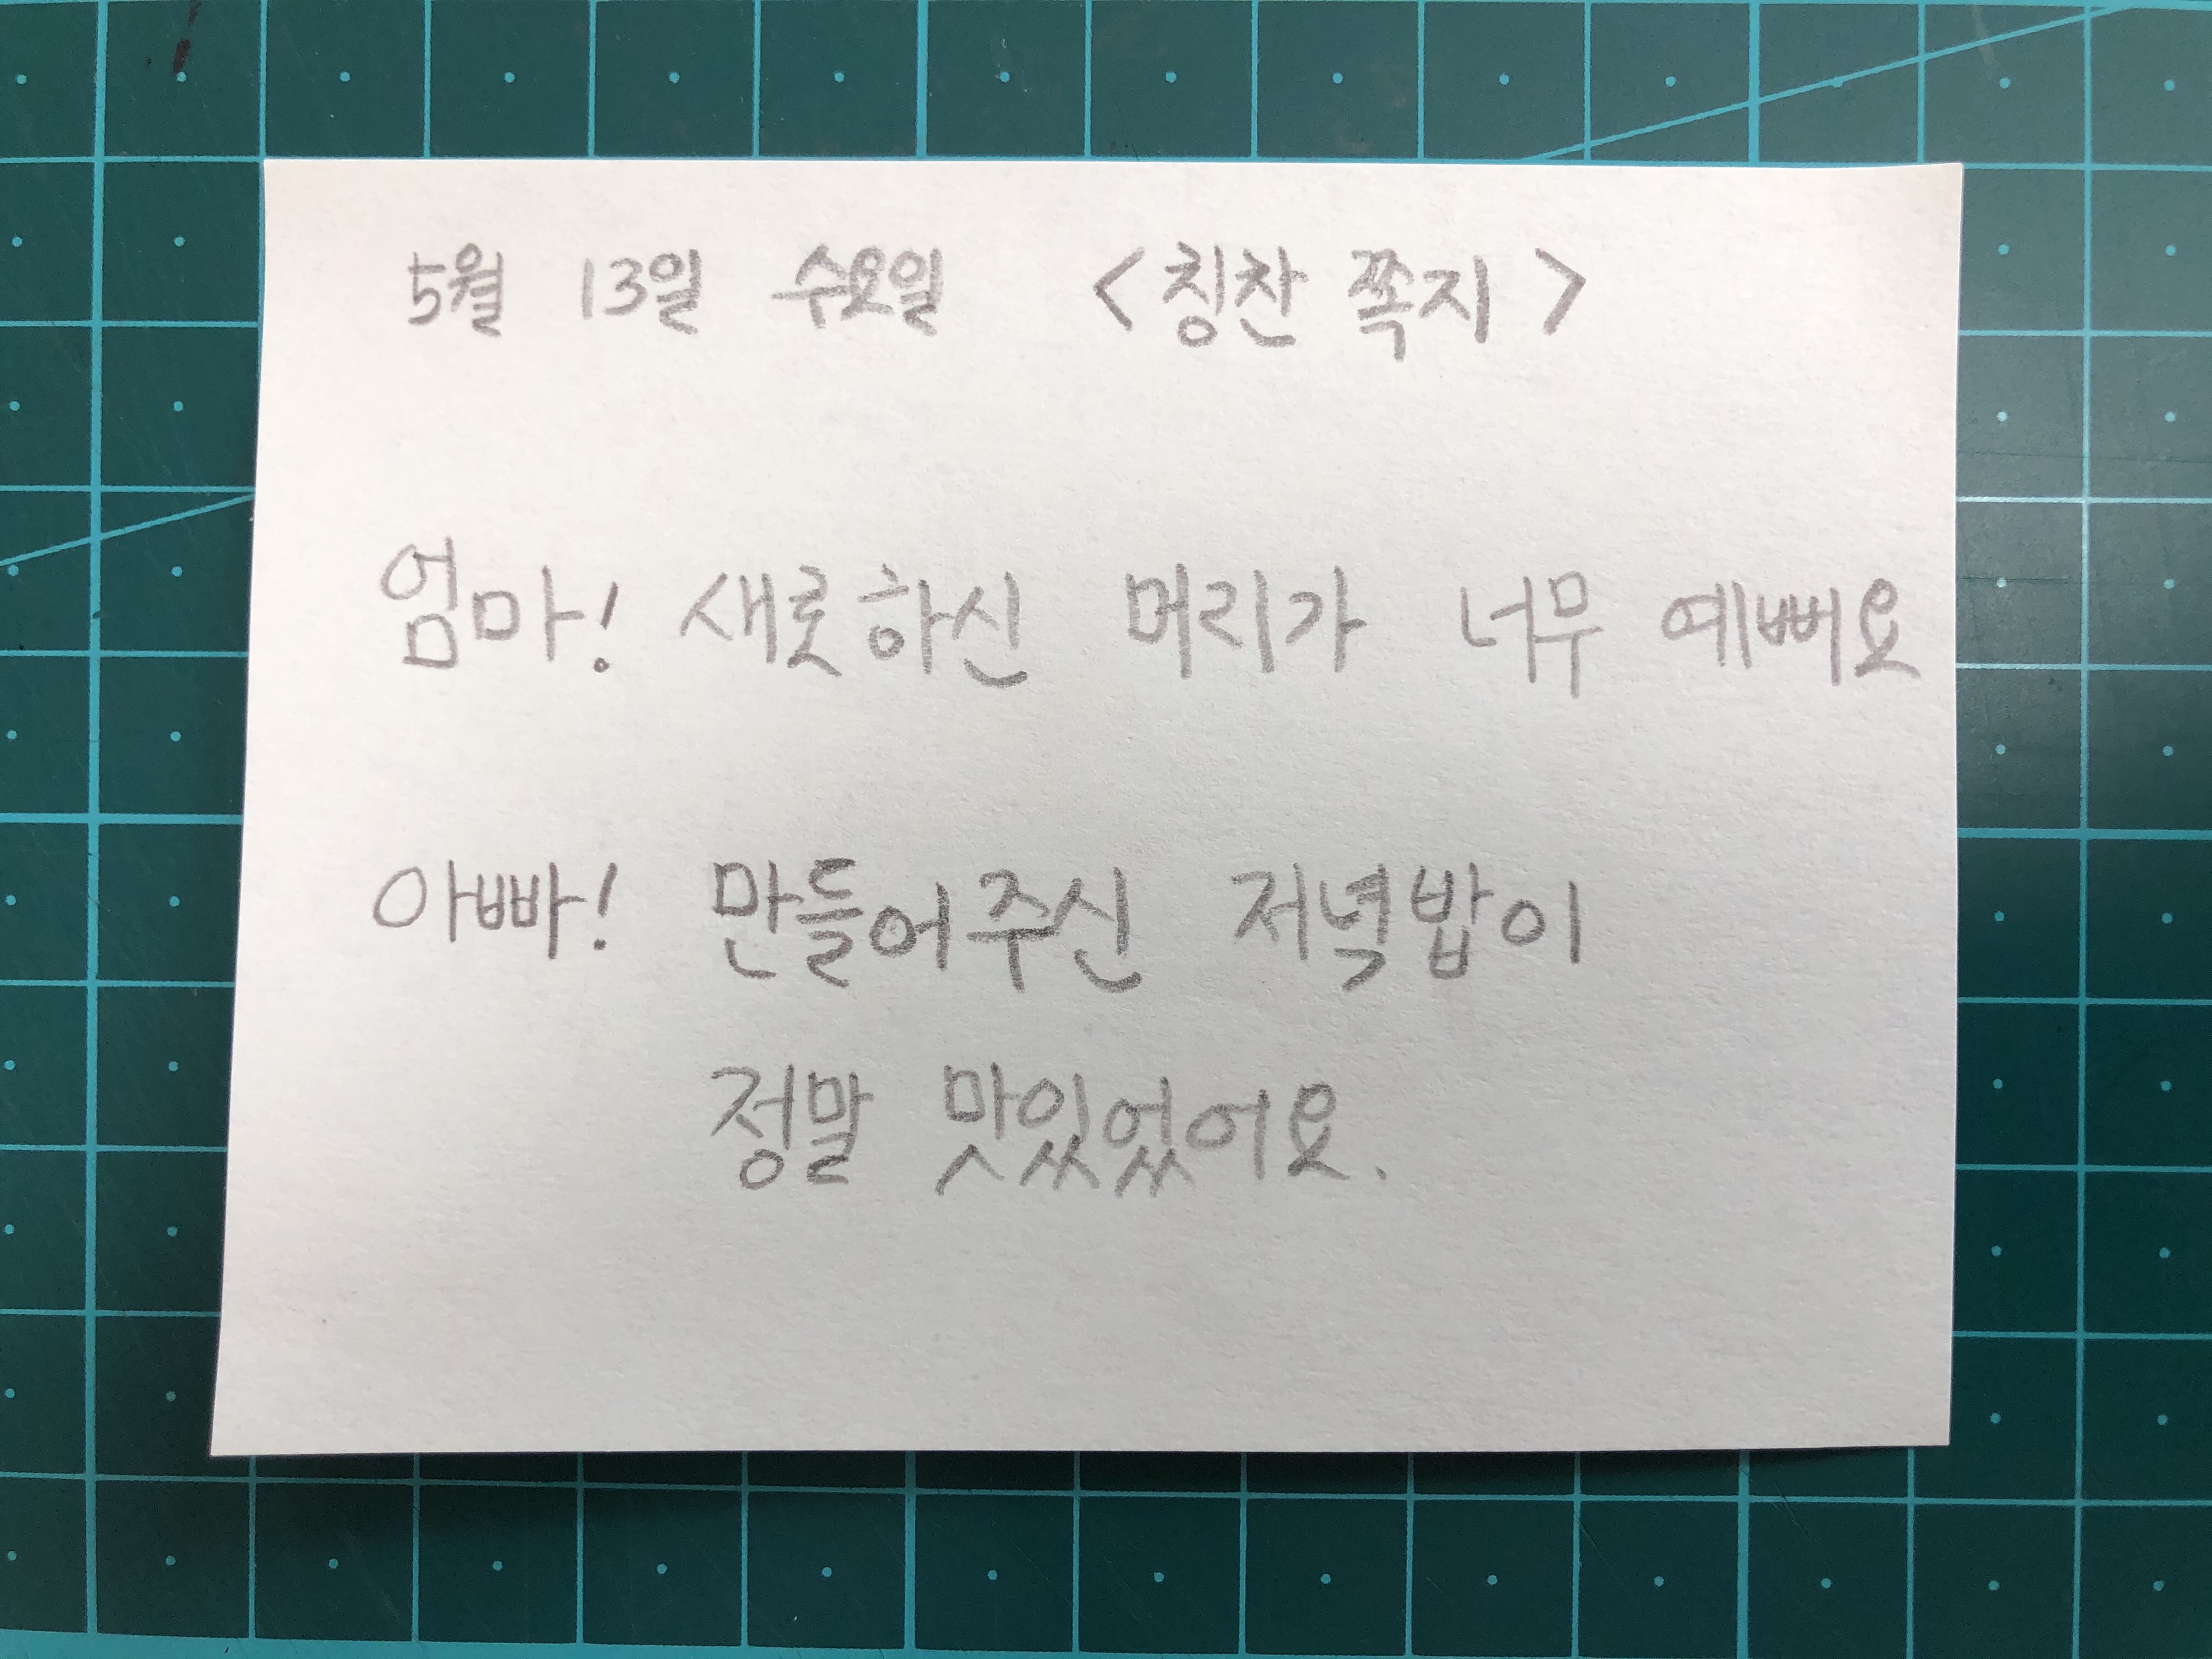 5월 13일 수요일 <칭찬 쪽지>
엄마! 새로하신 머리가 너무 예뻐요
아빠! 만들어주신 저녁밥이
정말 맛있었어요.